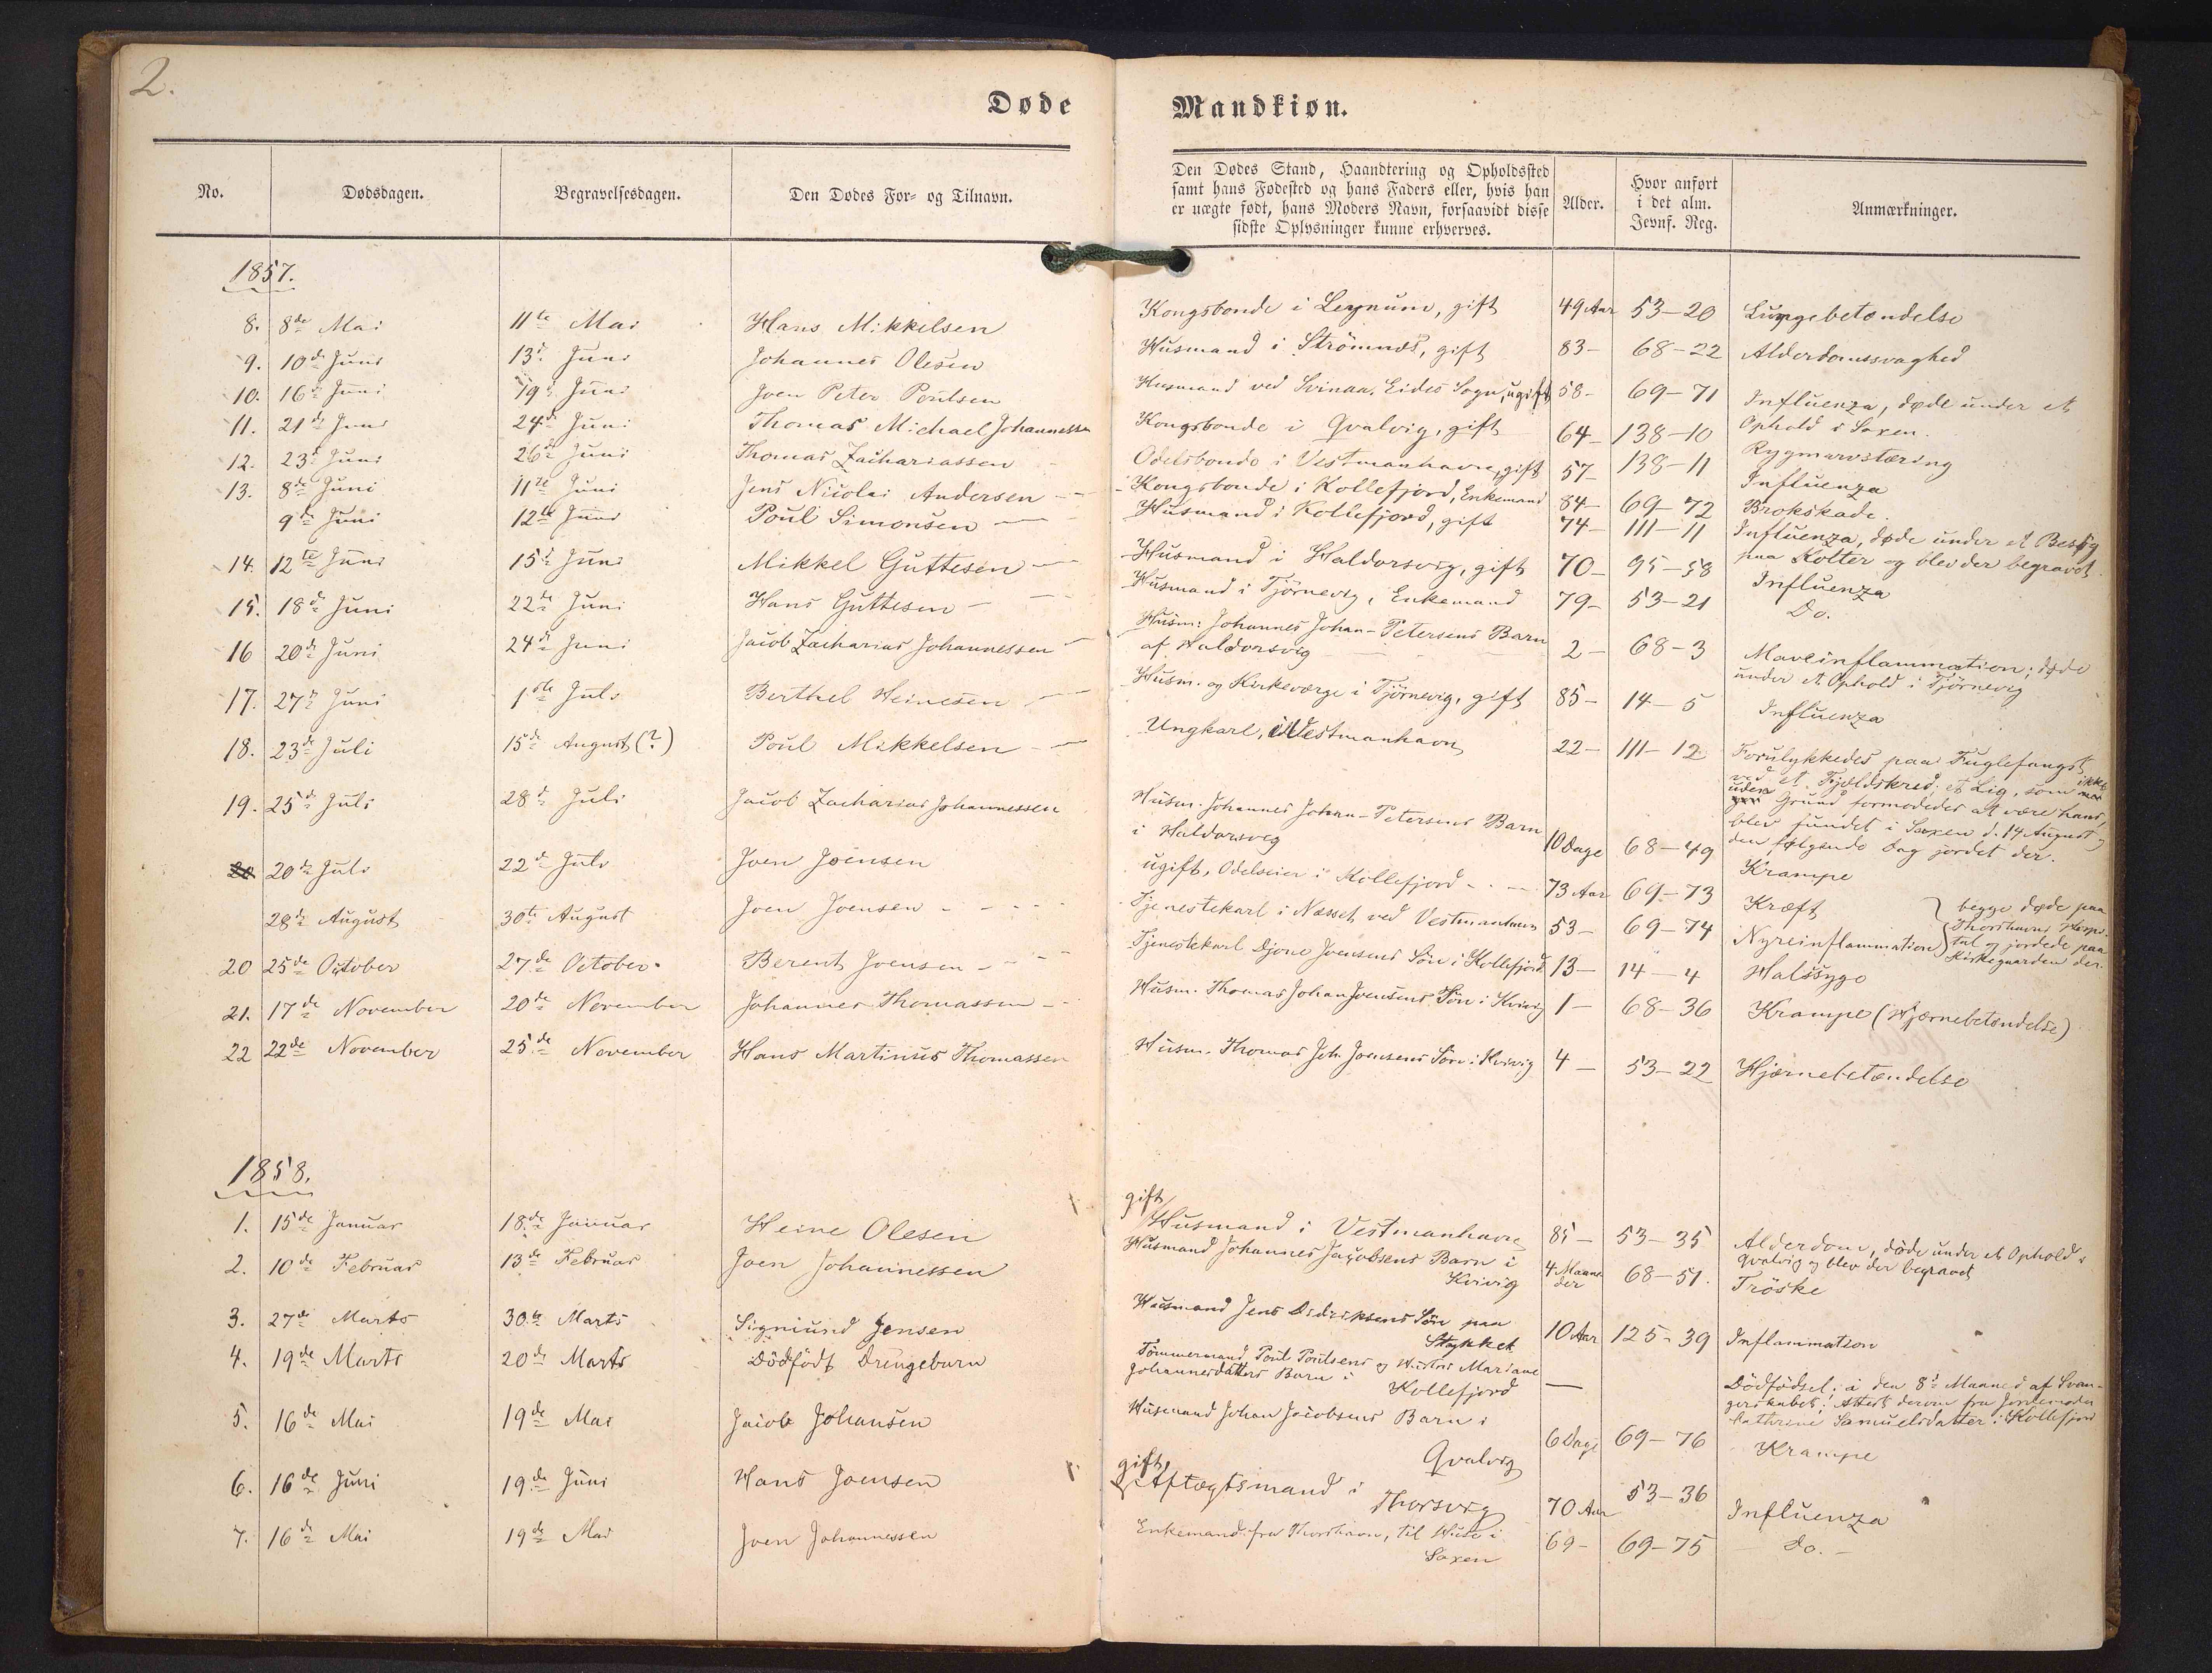 2.
Døde
Mandkiøn.
No.
Dødsdagen.
Begravelsesdagen.
Den Dødes For- og Tilnavn.
Den Dødes Stand, Haandtering og Opholdssted
samt hans Fødested og hans Faders eller, hvis han
er uægte født, hans Moders Navn, forsaavidt disse
sidste Oplysninger kunne erhverves.
Alder.
Hvor anført
i det alm.
Jevnf. Reg.
Anmærkninger.
1857.
8. 8de Mai 11te Mai Hans Mikkelsen Kongsbonde i Leynum, gift 49 Aar 53-20 Lungebetændelse
9. 10de Juni 13de Juni Johannes Olesen Husmand i Strömnæs, gift 83- 68-22 Alderdomssvaghed
10. 16de Juni 19de Juni Joen Peter Poulsen Husmand ved Svinaa, Eides Sogn, ugift 58- 69-71 Influenza, døde under et
Ophold i Saxen.
11. 21de Juni 24de Juni Thomas Michael Johannessen Kongsbonde i Qvalvig, gift 64- 138-10 Rygmarvstæring
12. 23de Juni 26de Juni Thomas Zachariassen Odelsbonde i Vestmanhavn, gift 57- 138-11 Influenza
13. 8de Juni 11te Juni Jens Nicolai Andersen Kongsbonde i Kollefjord, Enkemand 84- 69-72 Brokskade.
9de Juni 12te Juni Poul Simonsen Husmand i Kollefjord, gift 74- 111-11 Influenza, døde under et Besøg
paa Kolter og blev der begravet.
14. 12te Juni 15de Juni Mikkel Guttesen Husmand i Haldorsvig, gift 70- 95-58 Influenza
15. 18de Juni 22de Juni Hans Guttesen Husmand i Tjörnevig, Enkemand 79- 53-21 Do.
16 20de Juni 24de Juni Jacob Zacharias Johannessen Husm: Johannes Johan-Petersens Barn
af Haldorsvig 2- 68-3 Maveinflammation; døde
under et Ophold i Tjörnevig
17. 27de Juni 1ste Juli Berthel Heinesen Husm. og Kirkeværge i Tjörnevig, gift 85- 14-5 Influenza
18. 23de Juli 15de August (?) Poul Mikkelsen Ungkarl, i Vestmanhavn 22- 111-12 Forulykkedes paa Fuglefangst
ved et Fjeldskred; et Lig, som ikke
uden Grund formodedes at være hans,
blev fundet i Saxen d. 14 August og
den følgende Dag jordet der.
19. 25de Juli 28de Juli Jacob Zacharias Johannessen Husm. Johannes Johan-Petersens Barn
i Haldorsvig 10 Dage 68-49 Krampe
20 20de Juli 22de Juli Joen Joensen ugift, Odelseier i Kollefjord 73 Aar 69-73 Kræft
28de August 30te August Joen Joensen Tjenestekarl i Næsset ved Vestmanhavn 53- 69-74 Nyreinflammation
begge døde paa
Thorshavns Hospi-
tal og jordede paa
Kirkegaarden der.
20 25de October 27de October. Berent Joensen Tjenestekarl Djone Joensens Søn i Kollefjord 13- 14-4 Halssyge
21. 17de November 20de November Johannes Thomassen Husm. Thomas Johan Joensens Søn i Kvivig 1- 68-36 Krampe (Hjernebetændelse)
22 22de November 25de November Hans Martinus Thomassen Husm. Thomas Joh. Joensens Søn i Kvivig 4- 53-22 Hjærnebetændelse
1858.
1. 15de Januar 18de Januar Heine Olesen gift
Husmand i Vestmanhavn 85- 53-35 Alderdom, döde under et Ophold i
Qvalvig og blev der begravet
2. 10de Februar 13de Februar Joen Johannessen Husmand Johannes Jacobsens Barn i
Kvivig 4 Maane
der 68-51. Tröske
3. 27de Marts 30te Marts Sigmund Jensen Husmand Jens Didriksens Søn paa
Stykket 10 Aar 125-39 Inflammation
4. 19de Marts 20de Marts Dödfödt Drengebarn Tömmermand Poul Poulsens og Hustru Mariane
Johannesdatters Barn i
Kollefjord — Dödfödsel; i den 8de Maaned af Svan-
gerskabet; Attest derom fra Jordemoder
Cathrine Samuelsdatter i Kollefjord
5. 16de Mai 19de Mai Jacob Johansen Husmand Johan Jacobsens Barn i
Qvalvig 6 Dage 69-76 Krampe
6. 16de Juni 19de Juni Hans Joensen gift,
Aftægtsmand i
Thorsvig 70 Aar 53-36 Influenza
7. 16de Mai 19de Mai Joen Johannessen Enkemand fra Thorshavn, til Huse i
Saxen 69- 69-75 do.-